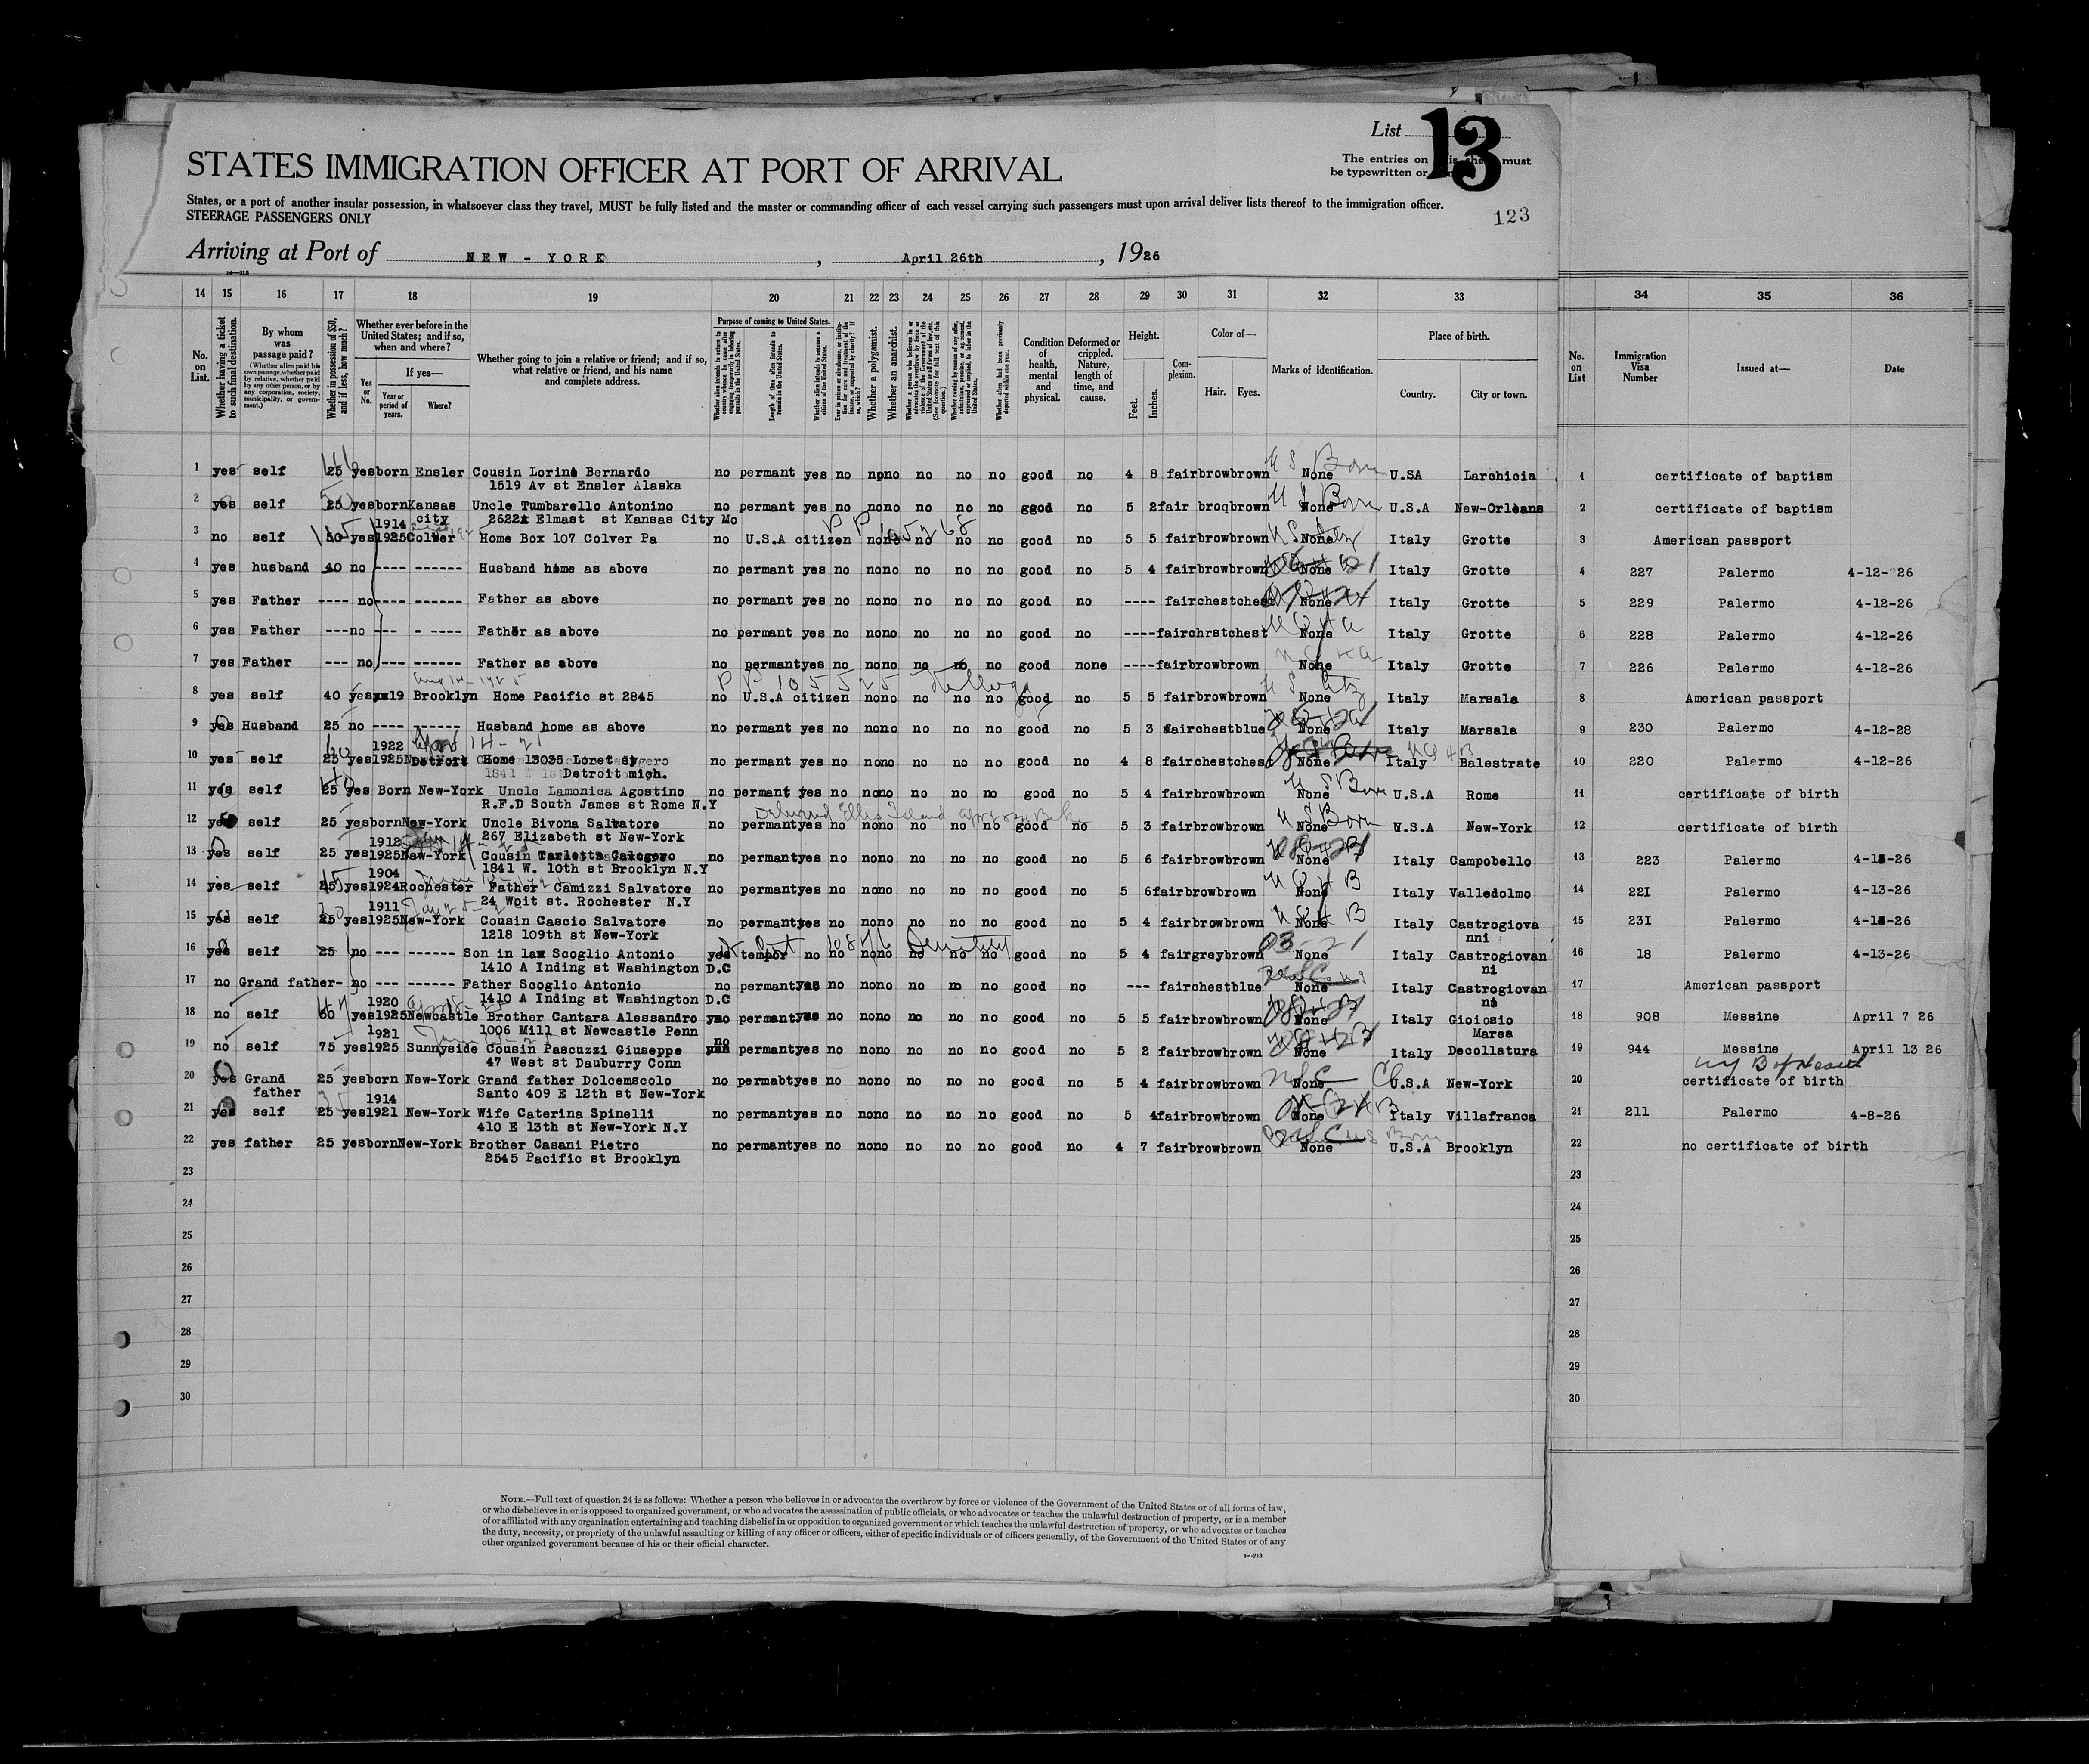 List 13
The entries on this sheet must
be typewritten or
STATES IMMIGRATION OFFICER AT PORT OF ARRIVAL
States, or a port of another insular possession, in whatsoever class they travel, MUST be fully listed and the master or commanding officer of each vessel carrying such passengers must upon arrival deliver lists thereof to the immigration officer.
STEERAGE PASSENGERS ONLY
123
Arriving at Port of NEW - YORK , April 26th , 1926
14 15 16 17 18 19 20 21 22 23 24 25 26 27 28 29 30 31 32 33 34 35 36
No. on List.
Whether having a ticket to such final destination.
By whom was passage paid?
(Whether alien paid his own passage, whether paid by relative, whether paid by any other person, or by any corporation, society, municipality, or government.)
Whether in possession of $50, and if less, how much?
Whether ever before in the United States; and if so, when and where?
Yes or No.
If yes—
Year or period of years.
Where?
Whether going to join a relative or friend; and if so, what relative or friend, and his name and complete address.
Purpose of coming to United States.
Length of time alien intends to remain in the United States.
Whether alien intends to become a citizen of the United States.
Whether a polygamist.
Whether an anarchist.
Condition of health, mental and physical.
Deformed or crippled. Nature, length of time, and cause.
Height.
Feet. Inches.
Complexion.
Color of—
Hair. Eyes.
Marks of identification.
Place of birth.
Country. City or town.
No. on List
Immigration Visa Number
Issued at—
Date
1 yes self 25 yes born Ensler Cousin Lorino Bernardo no permant yes no no no no no no good no 4 8 fair brow brown None U.SA Larchicia 1 certificate of baptism
1519 Av st Ensler Alaska
2 yes self 25 yes born Kansas Uncle Tumbarello Antonino no permant yes no no no no no no ggod no 5 2 fair broq brown None U.S.A New-Orleans 2 certificate of baptism
city 2622x Elmast st Kansas City Mo
1914
3 no self 50 yes 1925 Colver Home Box 107 Colver Pa no U.S.A citizen no no no no no good no 5 5 fair brow brown None Italy Grotte 3 American passport
4 yes husband 40 no ---- ------ Husband home as above no permant yes no no no no no no good no 5 4 fair brow brown None Italy Grotte 4 227 Palermo 4-12-26
5 yes Father ---- no ---- ------ Father as above no permant yes no no no no no no good no ---- fair chest chest None Italy Grotte 5 229 Palermo 4-12-26
6 yes Father --- no --- - ---- Father as above no permant yes no no no no no no good no ---- fair chrst chest None Italy Grotte 6 228 Palermo 4-12-26
7 yes Father --- no --- ------ Father as above no permant yes no no no no no no good none ---- fair brow brown None Italy Grotte 7 226 Palermo 4-12-26
8 yes self 40 yes 19 Brooklyn Home Pacific st 2845 no U.S.A citizen no no no no no no good no 5 5 fair brow brown None Italy Marsala 8 American passport
9 yes Husband 25 no ---- ------ Husband home as above no permant yes no no no no no no good no 5 3 fair chest blue None Italy Marsala 9 230 Palermo 4-12-28
1922
10 yes self 25 yes 1925 Detroit Home 13035 Loret dy no permant yes no no no no no no good no 4 8 fair chest chest None Italy Balestrate 10 220 Palermo 4-12-26
Detroit mich.
11 yes self 25 yes Born New-York Uncle Lamonica Agostino no permant yes no no no no no no good no 5 4 fair brow brown None U.S.A Rome 11 certificate of birth
R.F.D South James st Rome N.Y
12 yes self 25 yes born New-York Uncle Bivona Salvatore no permant yes no no no no no no good no 5 3 fair brow brown None U.S.A New-York 12 certificate of birth
267 Elizabeth st New-York
1912
13 yes self 25 yes 1925 New-York Cousin Tarletta Calogero no permant yes no no no no no no good no 5 6 fair brow brown None Italy Campobello 13 223 Palermo 4-13-26
1841 W. 10th st Brooklyn N.Y
1904
14 yes self 25 yes 1924 Rochester Father Camizzi Salvatore no permant yes no no no no no no good no 5 6 fair brow brown None Italy Valledolmo 14 22I Palermo 4-13-26
24 Woit st. Rochester N.Y
1911
15 yes self 25 yes 1925 New-York Cousin Cascio Salvatore no permant yes no no no no no no good no 5 4 fair brow brown None Italy Castrogiova 15 23I Palermo 4-13-26
1218 109th st New-York nni
16 yes self 25 no --- ------ Son in law Scoglio Antonio yes tempor no no no no no no no good no 5 4 fair grey brown None Italy Castrogiovan 16 18 Palermo 4-13-26
1410 A Inding st Washington D.C ni
17 no Grand father - no --- ------ Father Scoglio Antonio no permant yes no no no no no no good no --- fair chest blue None Italy Castrogiovan 17 American passport
1920 1410 A Inding st Washington D.C ni
18 no self 60 yes 1925 Newcastle Brother Cantara Alessandro no permant yes no no no no no no good no 5 5 fair brow brown None Italy Gioiosio 18 908 Messine April 7 26
1921 1006 Mill st Newcastle Penn Marea
19 no self 75 yes 1925 Sunnyside Cousin Pascuzzi Giuseppe no permant yes no no no no no no good no 5 2 fair brow brown None Italy Decollatura 19 944 Messine April 13 26
47 West st Dauburry Conn
20 yes Grand 25 yes born New-York Grand father Dolcemscolo no permabt yes no no no no no no good no 5 4 fair brow brown None U.S.A New-York 20 certificate of birth
father Santo 409 E 12th st New-York
1914
21 yes self 25 yes 1921 New-York Wife Caterina Spinelli no permant yes no no no no no no good no 5 4 fair brow brown None Italy Villafranca 21 211 Palermo 4-8-26
410 E 13th st New-York N.Y
22 yes father 25 yes born New-York Brother Casani Pietro no permant yes no no no no no no good no 4 7 fair brow brown None U.S.A Brooklyn 22 no certificate of birth
2545 Pacific st Brooklyn
23 23
24 24
25 25
26 26
27 27
28 28
29 29
30 30
NOTE.—Full text of question 24 is as follows: Whether a person who believes in or advocates the overthrow by force or violence of the Government of the United States or of all forms of law,
or who disbelieves in or is opposed to organized government, or who advocates the assassination of public officials, or who advocates or teaches the unlawful destruction of property, or is a member
of or affiliated with any organization entertaining and teaching disbelief in or opposition to organized government or which teaches the unlawful destruction of property, or who advocates or teaches
the duty, necessity, or propriety of the unlawful assaulting or killing of any officer or officers, either of specific individuals or of officers generally, of the Government of the United States or of any
other organized government because of his or their official character.